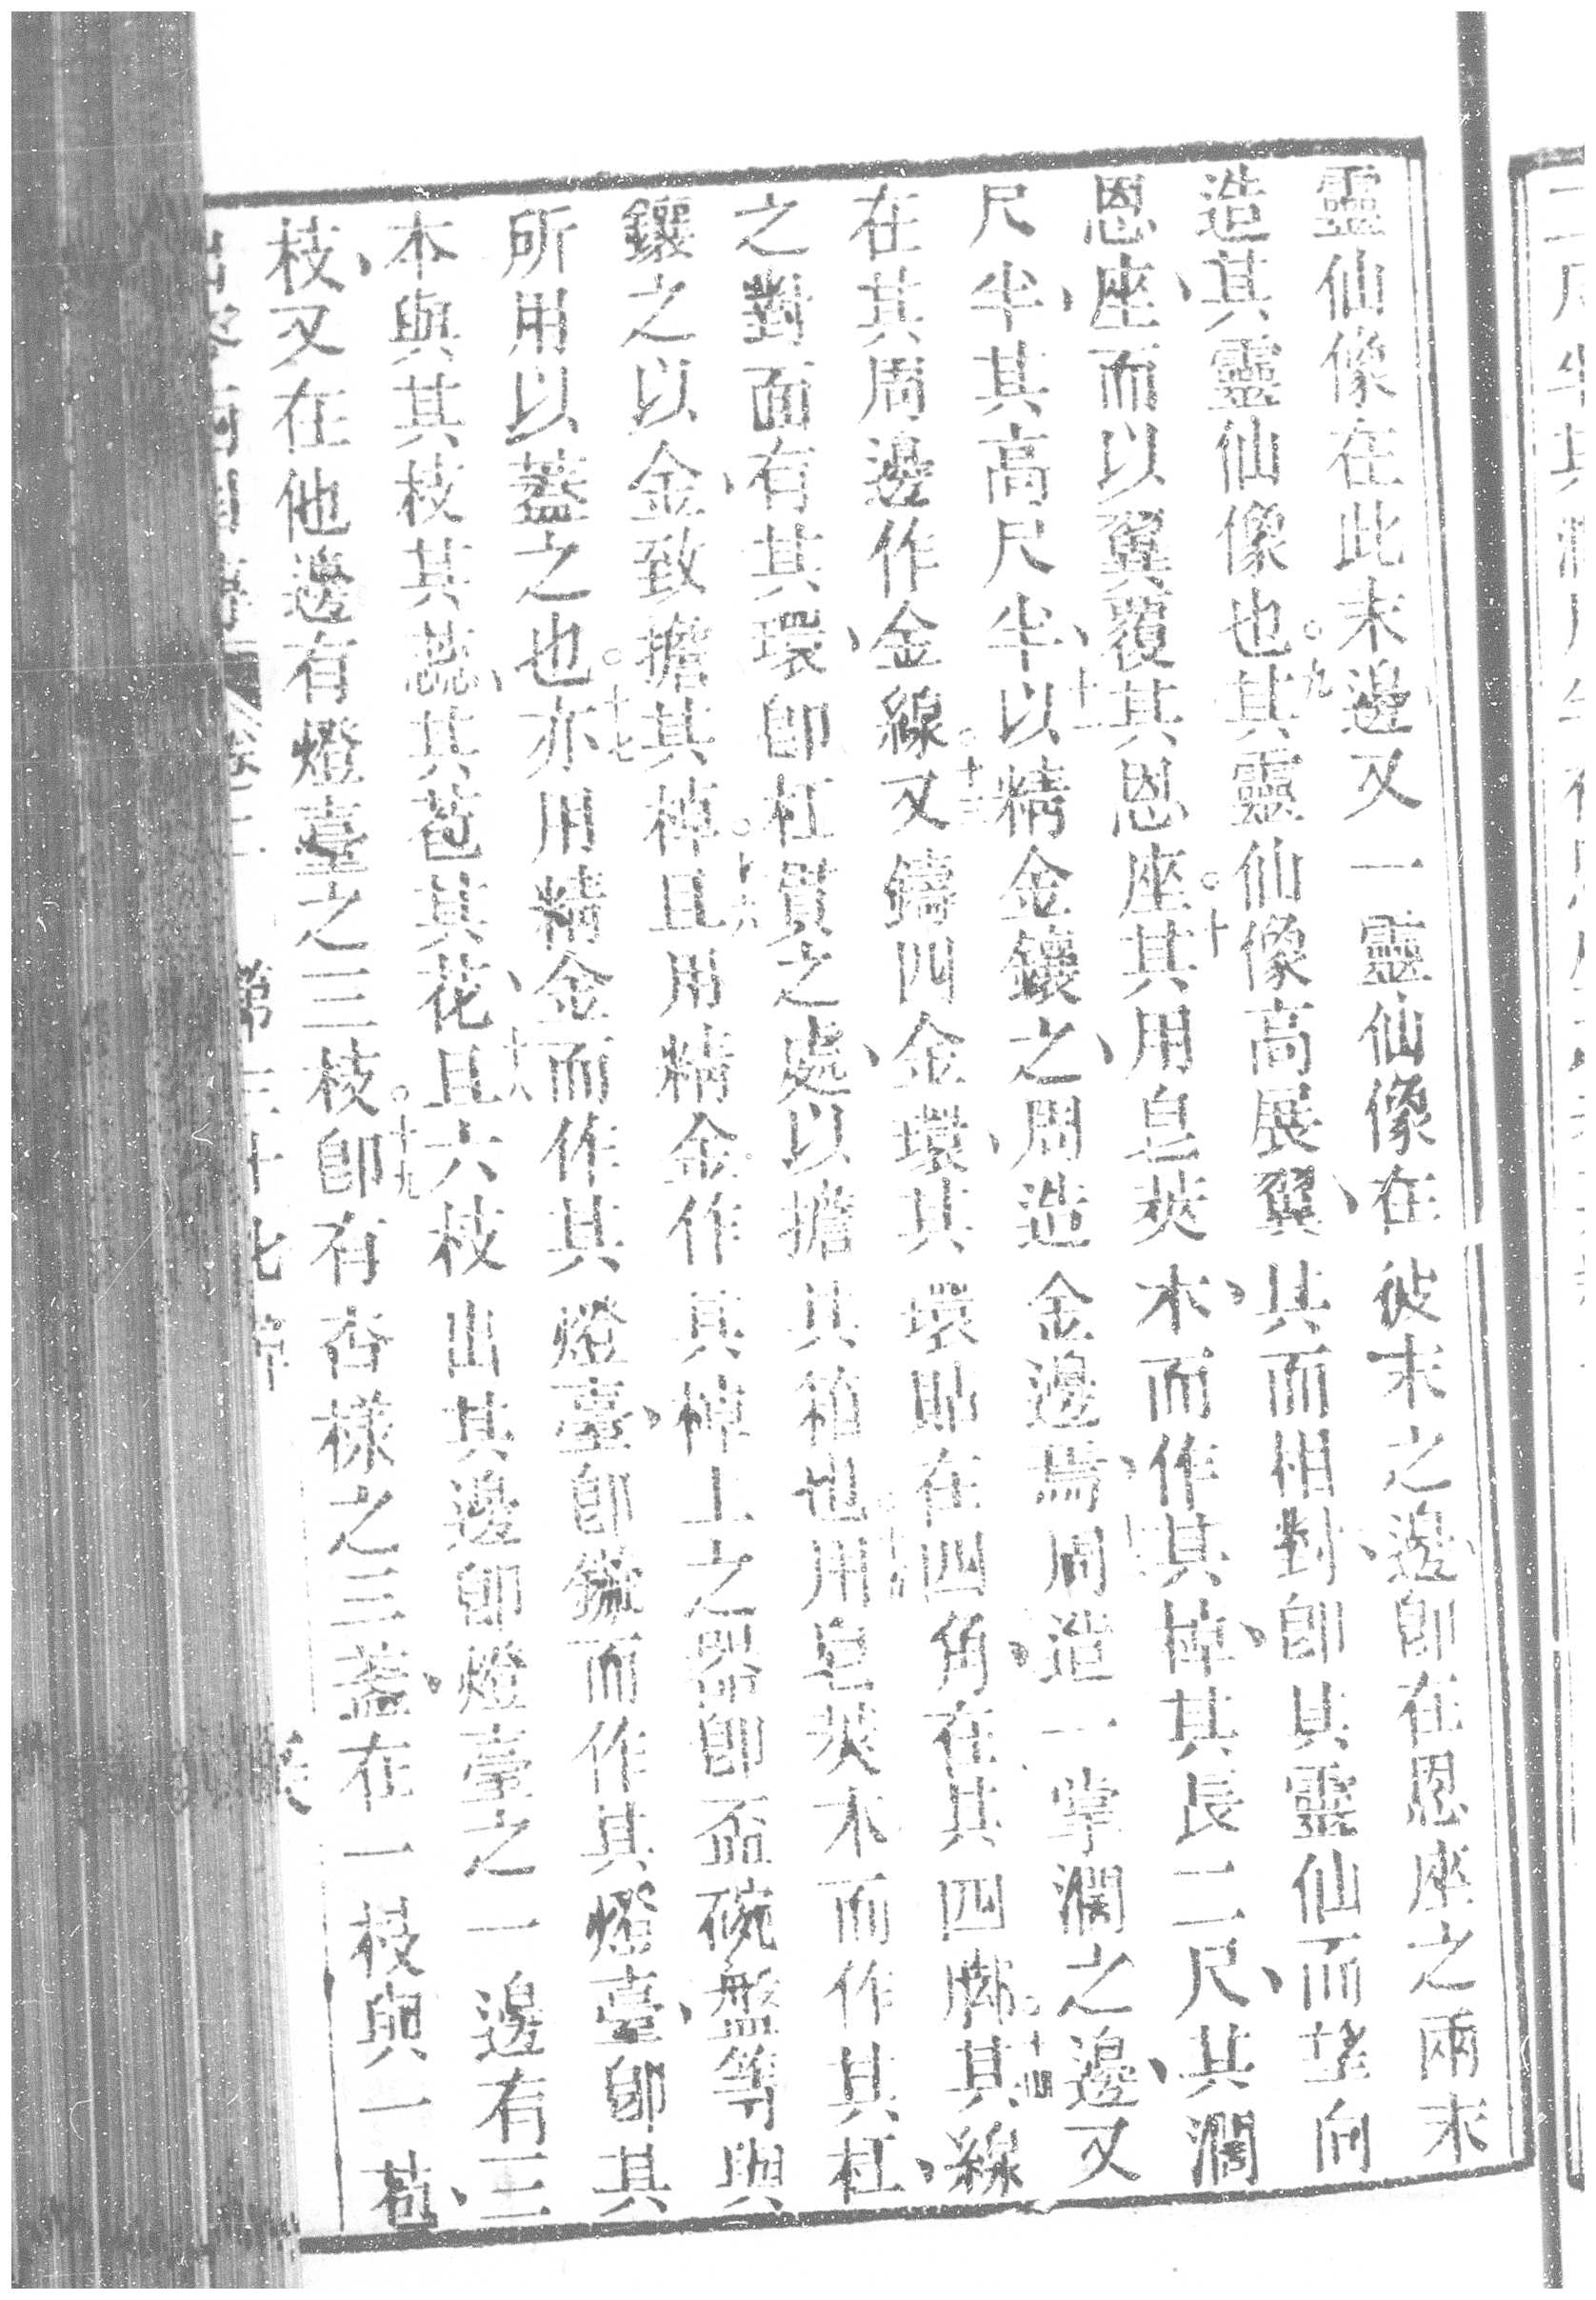 靈仙像在此末邊又一靈仙像在彼末之邊、卽在恩座之兩末
造其靈仙像也。九其靈仙像高展翼、共而相對、卽其靈仙而望向
恩座、而以翼覆其恩座。十其用皂莢木而作其棹、其長二尺、其濶
尺半、其高尺半、十一以精金鑲之、周造金邊焉、十二周造一掌濶之邊、又
在其周邊作金線。十三又鑄四金環、其環貼在四角、在其四脚。十四其線
之對面有其環、卽杠貫之處、以擔其箱也。十五用皂莢木而作其杠、
鑲之以金、致擔其棹。十六且用精金作其棹上之器、卽盃碗盤等、與
所用以蓋之也。十七亦用精金而作其燈臺、卽鎚而作其燈臺、卽其
本與其枝其蕊、其苞其花、十八且六枝出其邊、卽燈臺之一邊有三
枝、又在他邊有燈臺之三枝。十九卽有杏樣之三盞、在一枝與一苞、
第三十七章